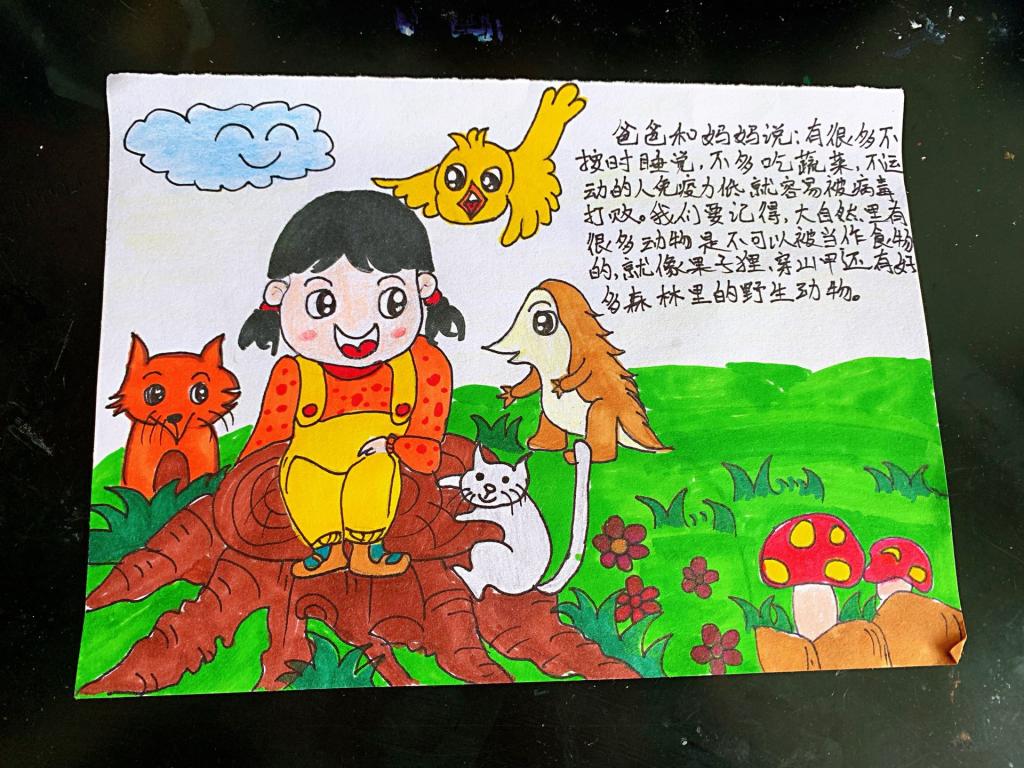 爸爸和妈妈说：有很多不
按时睡觉，不多吃蔬菜，不运
动的人免疫力低就容易被病毒
打败。我们要记得，大自然里有
很多动物是不可以被当作食物
的，就像果子狸、穿山甲还有好
多森林里的野生动物。